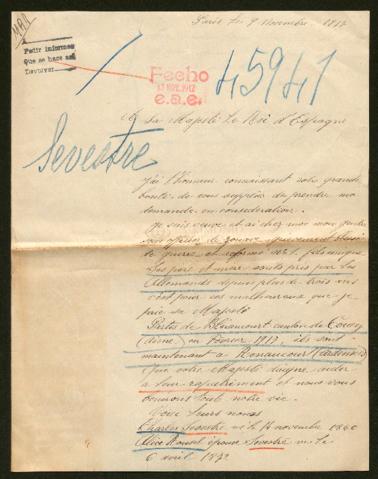 Paris le 9 Novembre 1917
Pedir informes
Que se hace así
Devolver
Fecho
13 NOV. 1917
e.a.e.
45941
A Sa Majesté Le Roi d'Espagne
Sevestre
J'ai l'honneur connaissant votre grande
bonté de vous supplier de prendre ma
demande en consideration.
Je suis veuve et ai chez moi mon gendre
de guerre et réformé
père et mère sont pris par les
Allemands depuis plus de trois ans
c'est pour ces malheureux que je
prie sa Majesté
Partis de Blérancourt canton de Coucy
(Aisne) en Février 1917, ils sont
maintenant à Renaucourt (Ardennes)
Que votre Majesté daigne aider
à leur rapatriement et nous vous
bénirons toute notre vie.
Voici leurs noms
Charles Sevestre né le 14 novembre 1860
Alice épouse Sevestre née le
6 avril 1872